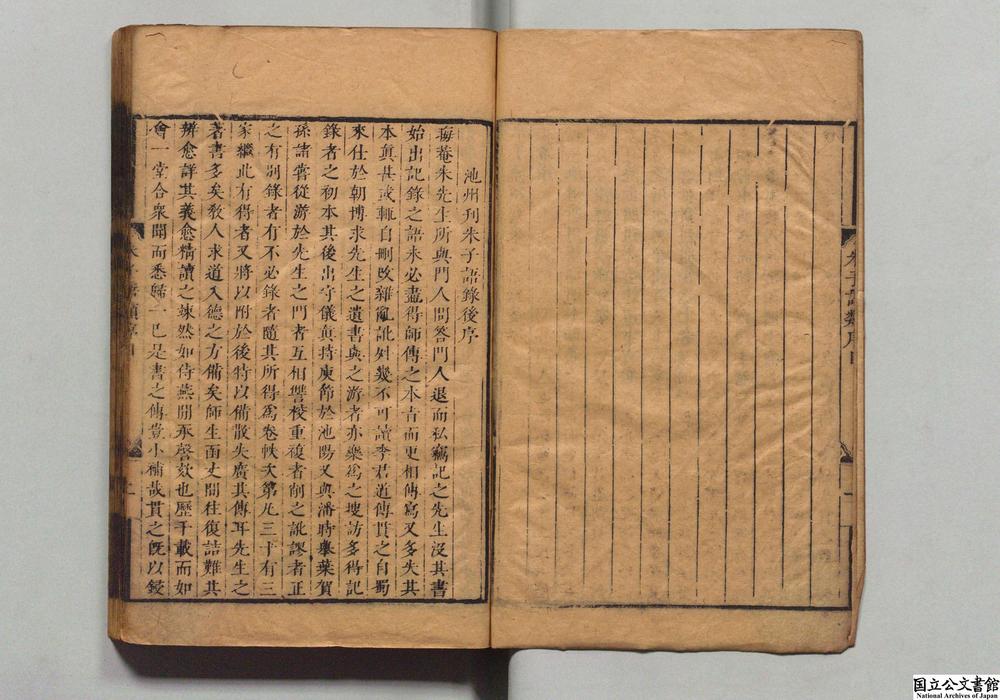 朱子語類序目
池州刊朱子語錄後序
晦菴朱先生所與門人問答門人退而私竊記之先生沒其書
始出記錄之語未必盡得師傳之本旨而更相傳寫又多失其
本眞甚或輒自刪改雜亂訛舛幾不可讀李君道傳貫之自蜀
來仕於朝博求先生之遺書與之游者亦樂爲之搜訪多得記
錄者之初本其後出守儀眞持庾節於池陽又與潘時舉葉賀
孫諸嘗從游於先生之門者互相讐校重複者削之訛謬者正
之有別錄者有不必錄者隨其所得爲卷帙次第凡三十有三
家繼此有得者又將以附於後特以備散失廣其傳耳先生之
著書多矣敎人求道入德之方備矣師生函丈間往復詰難其
辨愈詳其義愈精讀之竦然如侍燕閒承謦欬也歷千載而如
會一堂合衆聞而悉歸一己是書之傳豈小補哉貫之旣以鋟
朱子語類序目
二
国立公文書館
National Archives of Japan